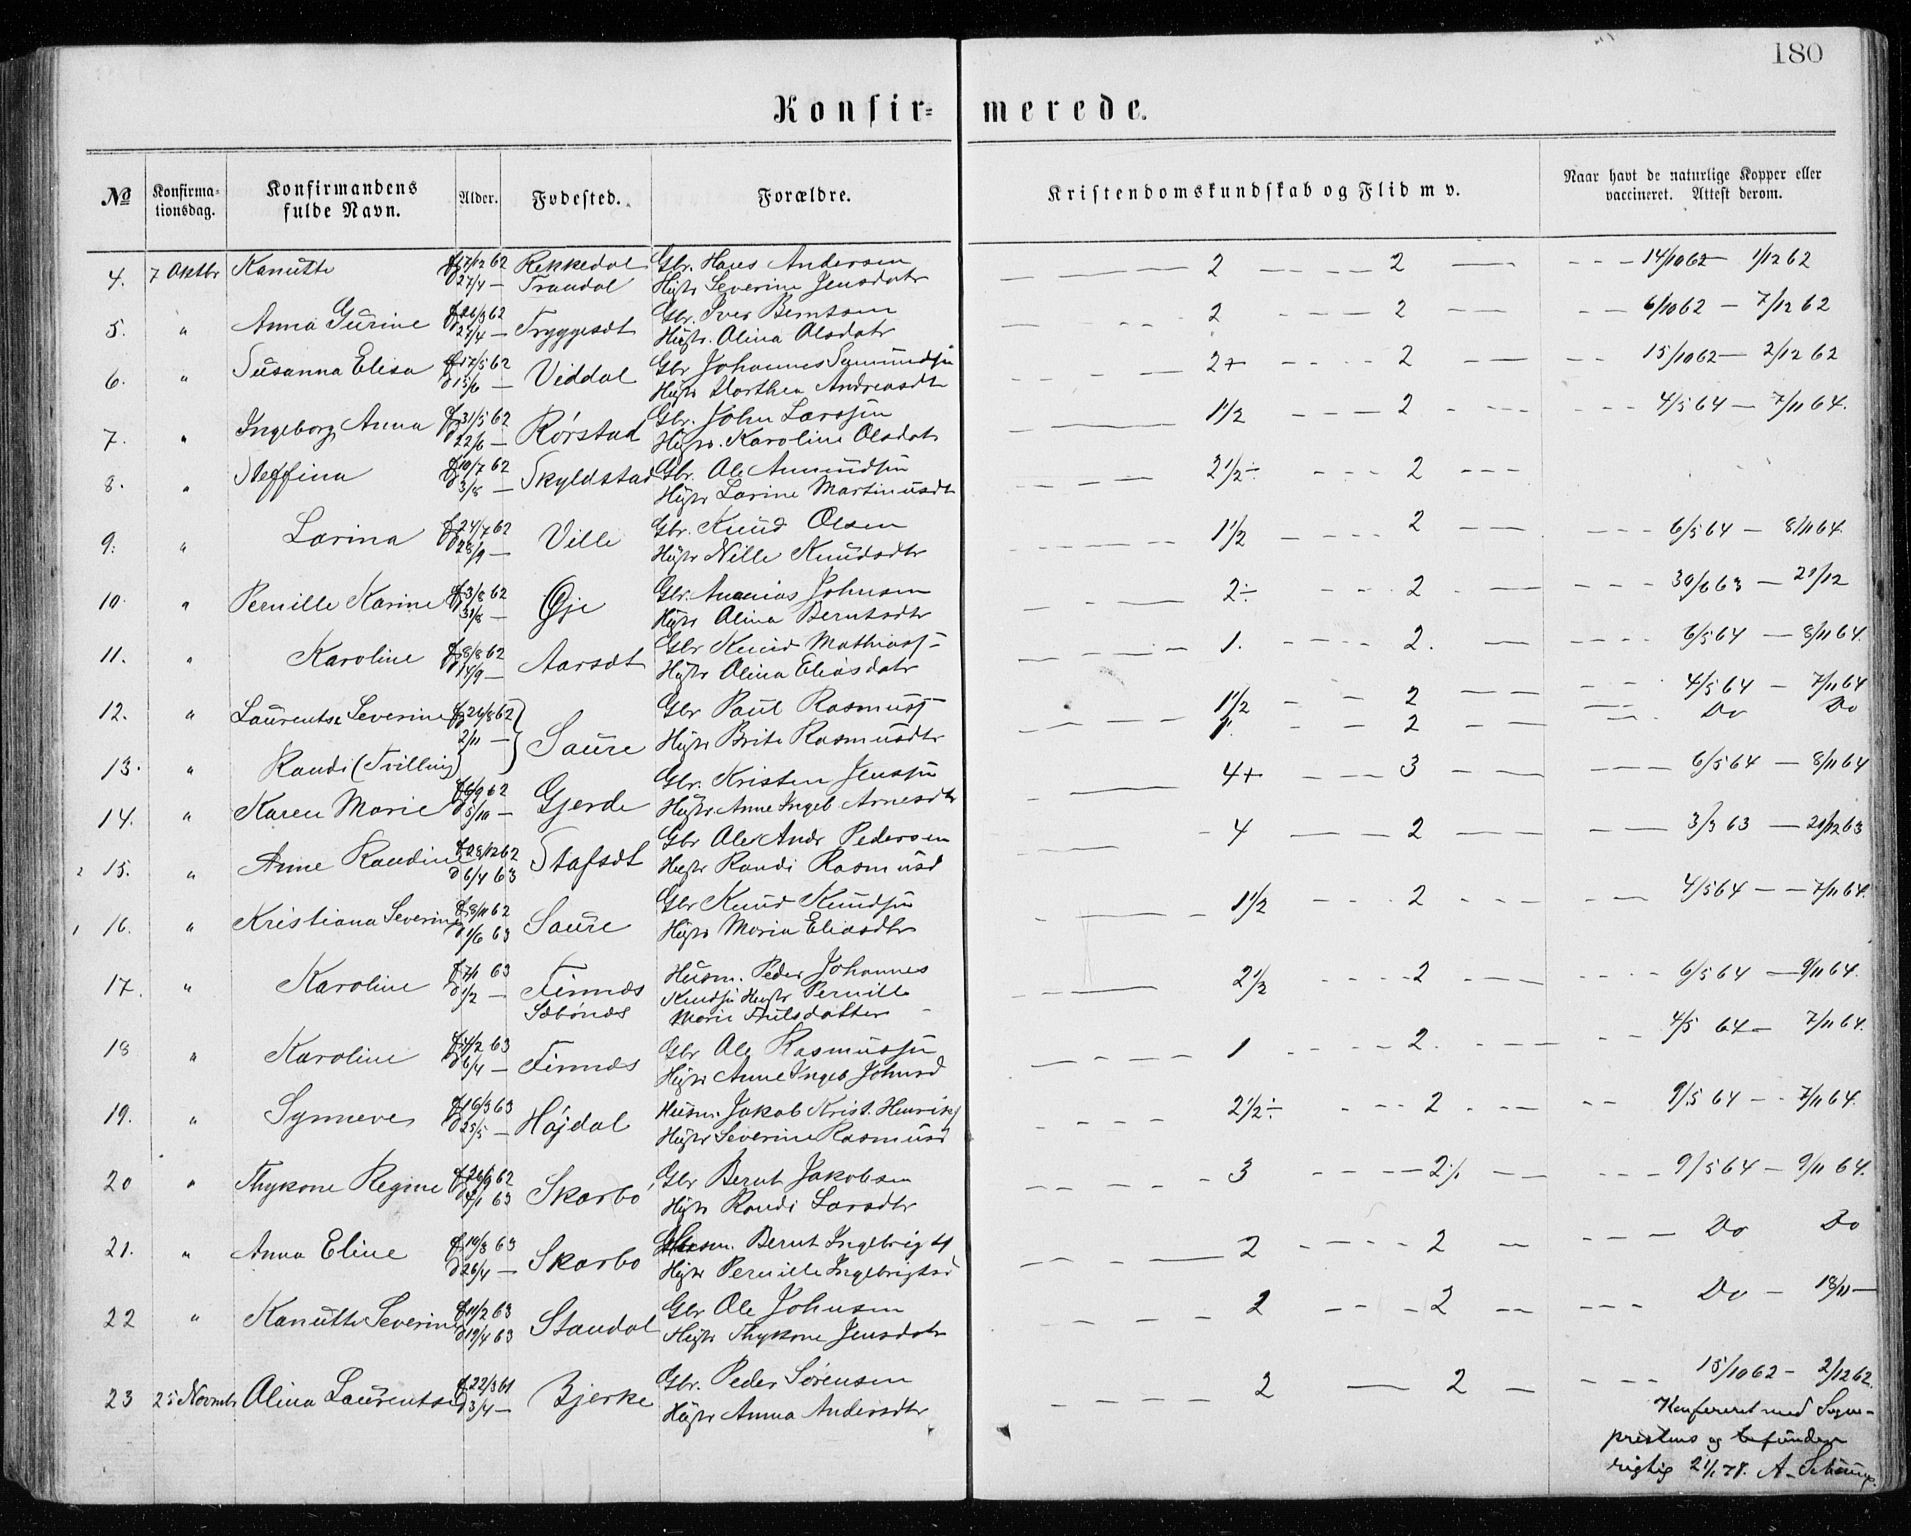 180
Konfir=merede.
№ Konfirma=tionsdag. Konfirmandens fulde Navn. Alder. Fødested. Forældre. Kristendomskundskab og Flid m v. Naar havt de naturlige Kopper eller vaccineret. Attest derom.
4. 7 Oktbr Kanutte f 7/12 62 Rekkedal Gbr. Hans Andersen 2 2 14/10 62 — 1/12 62
d 27/4 — Trandal Hustr Severine Jensdatr
5. " Anna Gurine f 26/3 62 Tryggesdt Gbr. Iver Berntsen 2 2 6/10 62 — 7/12 62
d 21/4 — Hustr. Olina Olsdatr
6. " Susanna Elisa f 17/5 62 Viddal Gbr Johannes 2+ 2 15/10 62 — 2/12 62
d 15/6 — Hustr Dorthea Andreasdtr
7. " Ingeborg Anna f 31/5 62 Rörstad Gbr. John Larssøn 1 1/2 2 4/5 64 — 7/11 64.
d 22/6 — Hustr. Karoline Olsdatr
8. " Steffina f 10/7 62 Skyldstad Gbr. Ole Amundsøn 2 1/2 ÷ 2
d 3/8 — Hustr Larine Martinusdt
9. " Larina f 24/7 62 Ville Gbr. Knud Olsen 1 1/2 2 6/5 64 — 8/11 64.
d 28/9 — Hustr Nille Knudsdtr
10. " Pernille Karine f 3/8 62 Øje Gbr. Ananias Johnsen 2÷ 2 30/6 63 — 21/12
31/8 — Hustr Olina Berntsdtr
11. " Karoline f 8/8 62 Aarsdt Gbr Knud Mathiass 1. 2. 6/5 64 — 8/11 64.
d 14/9 — Hustr Olina Eliasdatr
12. " Laurentse Severine f 26/8 62 } Saure Gbr Paul Rasmuss 1 1/2 2 4/5 64 — 7/11 64
2/11 — Hustr Brite Rasmusdtr 1. 2 Do Do
13. " Randi (Tvilling)
14. " Karen Marie f 6/9 62 Gjerde Gbr. Kristen Jenssøn 4+ 3 6/5 64 — 8/11 64
d 5/10 — Hustr Anne Ingeb Arnesdtr
2 15. " Anne Raudine f 28/12 62 Stafsdt Gbr Ole Andr Pedersen 4 2 3/3 63 — 21/12 63
d 6/4 63 Hustr Randi Rasmusd
1 16. " Kristiana Severine f 8/11 62 Saure Gbr Knud Knudsøn 1 1/2 2 4/5 64 — 7/11 64.
d 1/6 63 Hustr Maria Eliasdtr
17. " Karoline f 7/1 63 Finnes Husm. Peder Johannes 2 1/2 2 6/5 64 — 9/11 64.
d 1/2 — Sæbönes Knudsøn Hustr Pernille
Marie
18 " Karoline f 4/2 63 Finnes Gbr Ole Rasmussøn 1 2. 4/5 64 — 7/11 64.
d 6/4 — Hustr Anne Ingeb Johnsd
19. " Synneve f 16/3 63 Höjdal Husm. Jakob Krist. Henriks 2 1/2 ÷ 2 9/5 64 — 7/11 64.
d 25/5 — Hustr Severine Rasmusd
20 " Thykone Regine f 26/9 62 Skarbö Gbr Bernt Jakobsen 3 2 9/5 64 — 9/11 64.
d 4/1 63 Hustr Randi Larsdtr
21. " Anna Eline f 14/3 63 Skarbö Husm. Bernt Ingebrigts 2 2 Do Do
d 26/4 — Hustr Pernille Ingebrigtsd
22 " Kanutte Severine f 11/2 63 Standal Gbr Ole Johnsen 2 2 Do — 18/11 —
d 19/4 63 Hustr Thykone Jensdatr
23 25 Novmbr Olina Laurentse f 22/3 61 Bjerke Gbr. Peder Sørensen 2 2 15/10 62 — 2/12 62.
d 3/4 — Hustr Anna Andersdtr
Konfereret med Sogne-
prestens og befunden
rigtig 2 1/1 78. A.